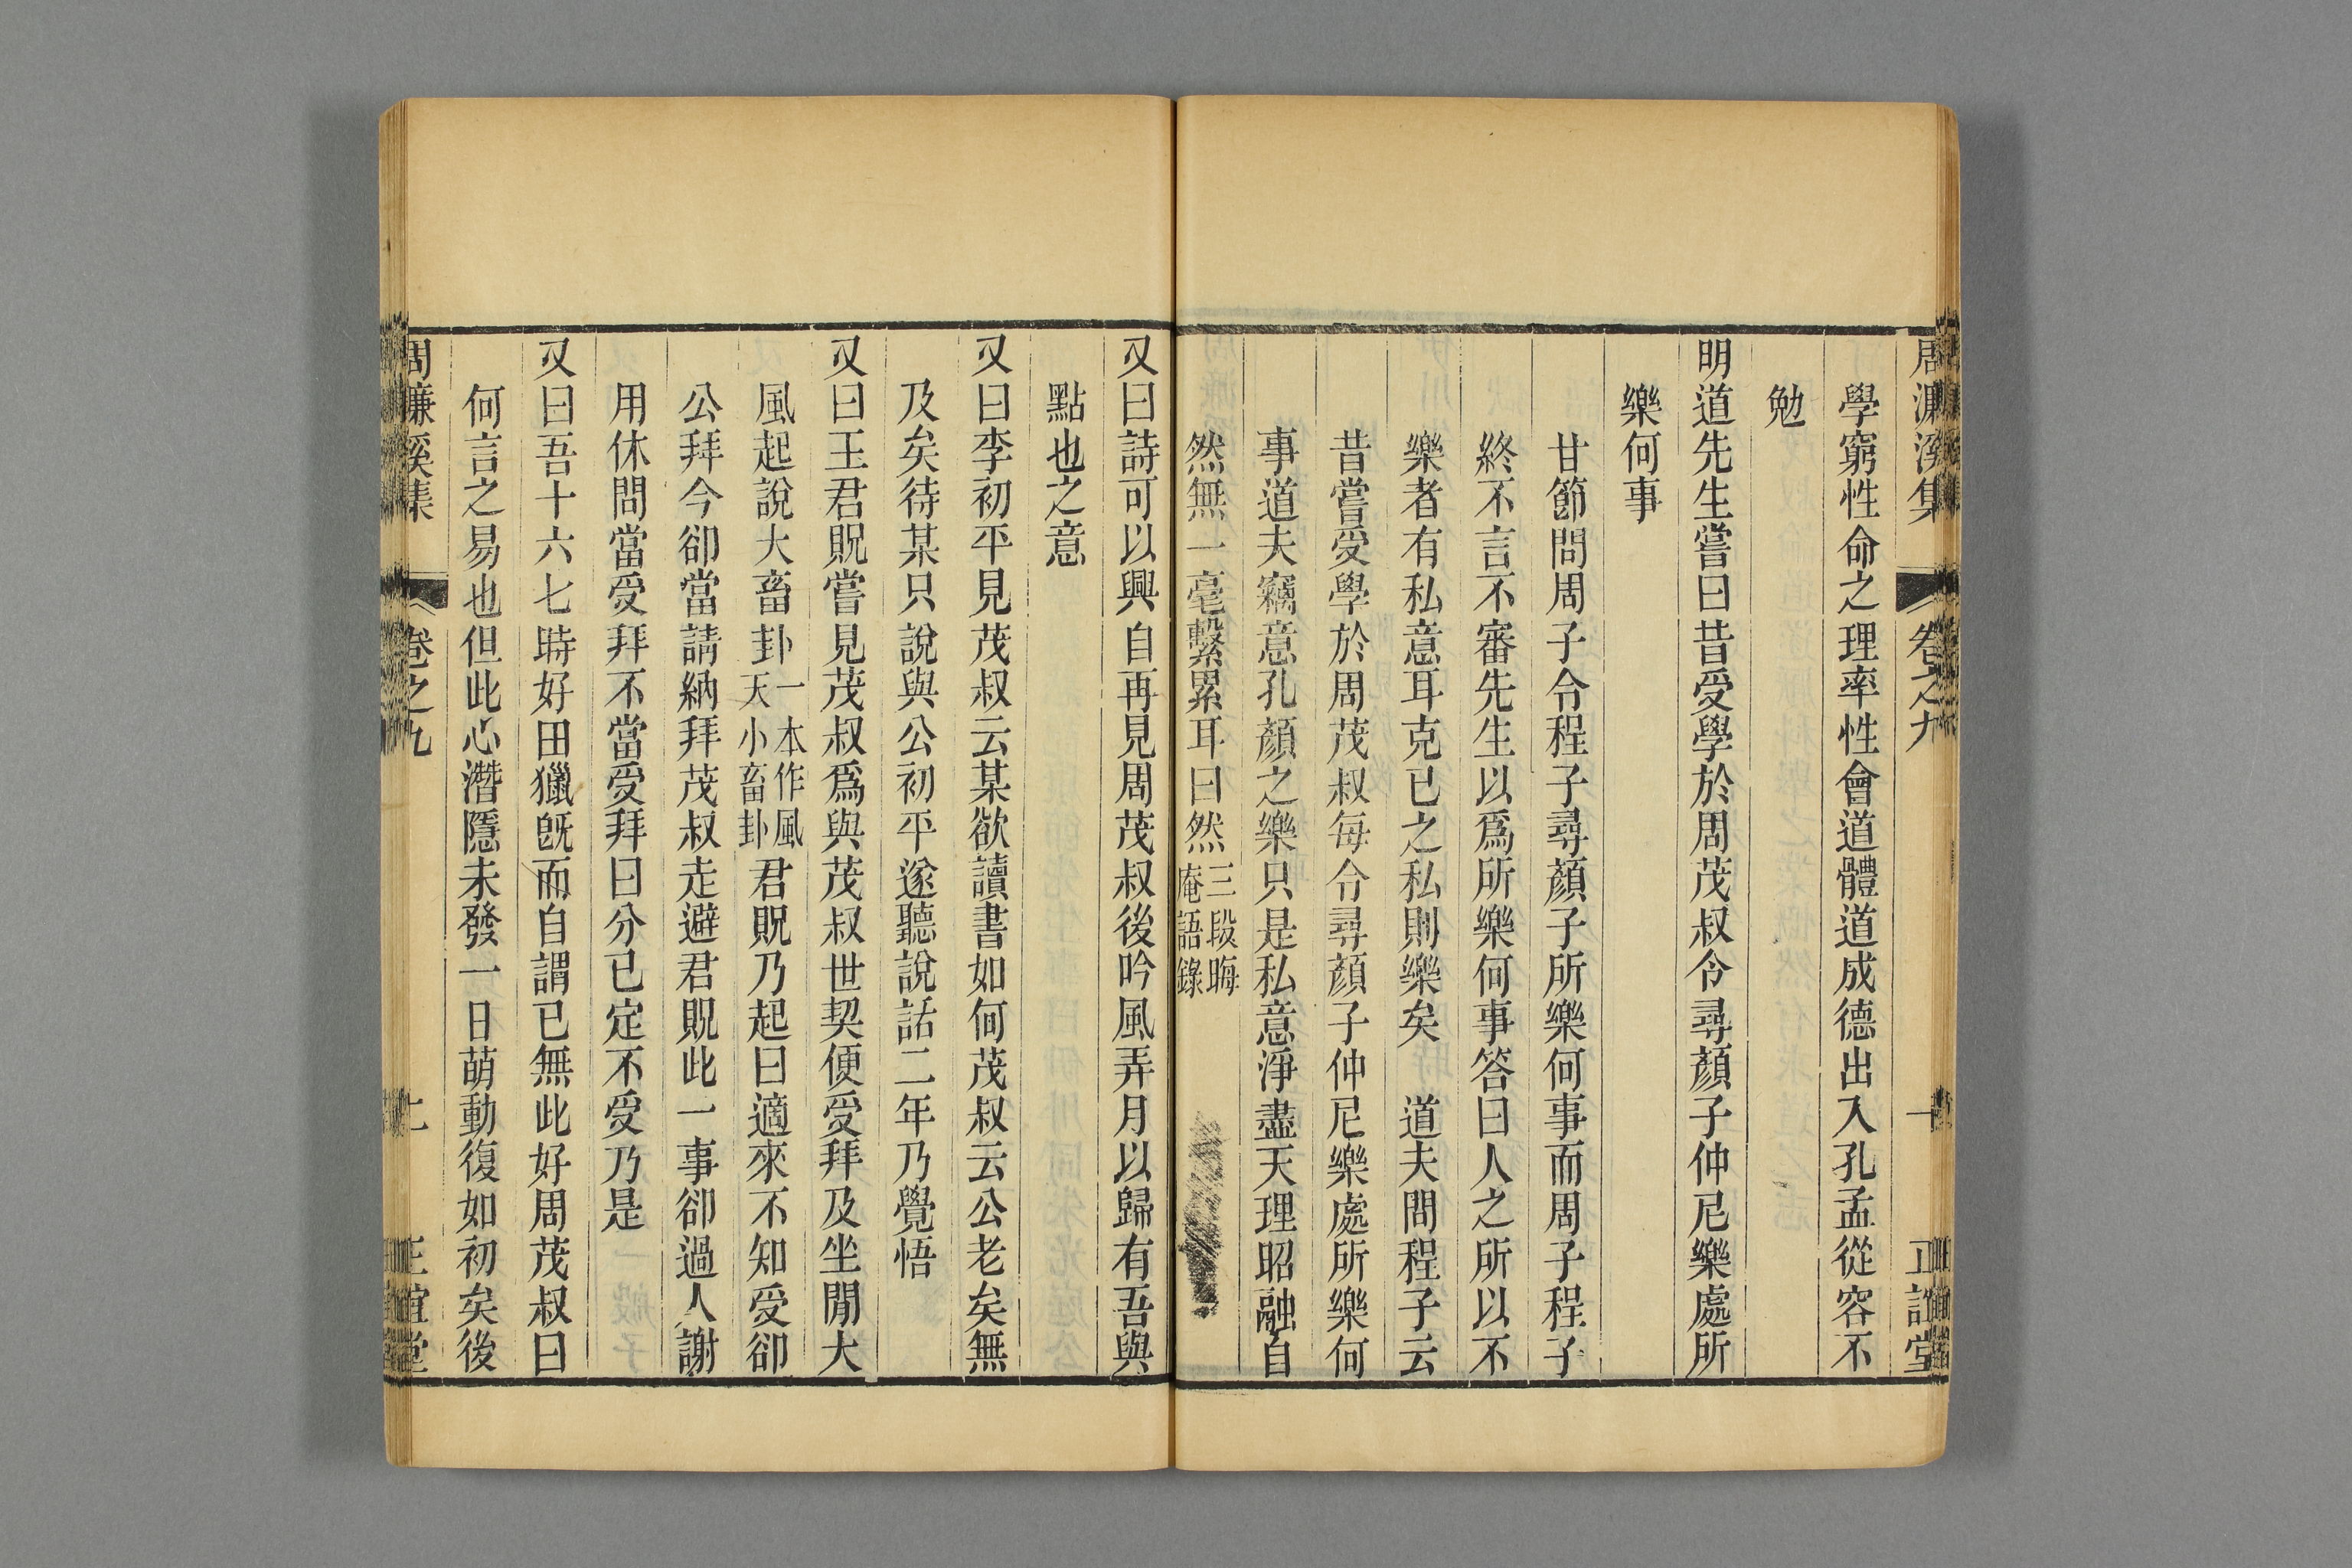 周濂溪集
卷之九
十
正誼堂
學窮性命之理率性會道體道成德出入孔孟從容不
勉
明道先生嘗曰昔受學於周茂叔令尋顏子仲尼樂處所
樂何事
甘節問周子令程子尋顏子所樂何事而周子程子
終不言不審先生以爲所樂何事答曰人之所以不
樂者有私意耳克已之私則樂矣　道夫問程子云
昔嘗受學於周茂叔每令尋顏子仲尼樂處所樂何
事道夫竊意孔顏之樂只是私意淨盡天理昭融自
然無一毫繫累耳曰然三段晦
庵語錄
又曰詩可以興自再見周茂叔後吟風弄月以歸有吾與
點也之意
又曰李初平見茂叔云某欲讀書如何茂叔云公老矣無
及矣待某只說與公初平遂聽說話二年乃覺悟
又曰王君貺嘗見茂叔爲與茂叔世契便受拜及坐閒大
風起說大畜卦一本作風
天小畜卦君貺乃起曰適來不知受卻
公拜今卻當請納拜茂叔走避君貺此一事卻過人謝
用休問當受拜不當受拜曰分已定不受乃是
又曰吾十六七時好田獵旣而自謂已無此好周茂叔曰
何言之易也但此心潛隱未發一日萌動復如初矣後
周濂溪集
卷之九
正誼堂